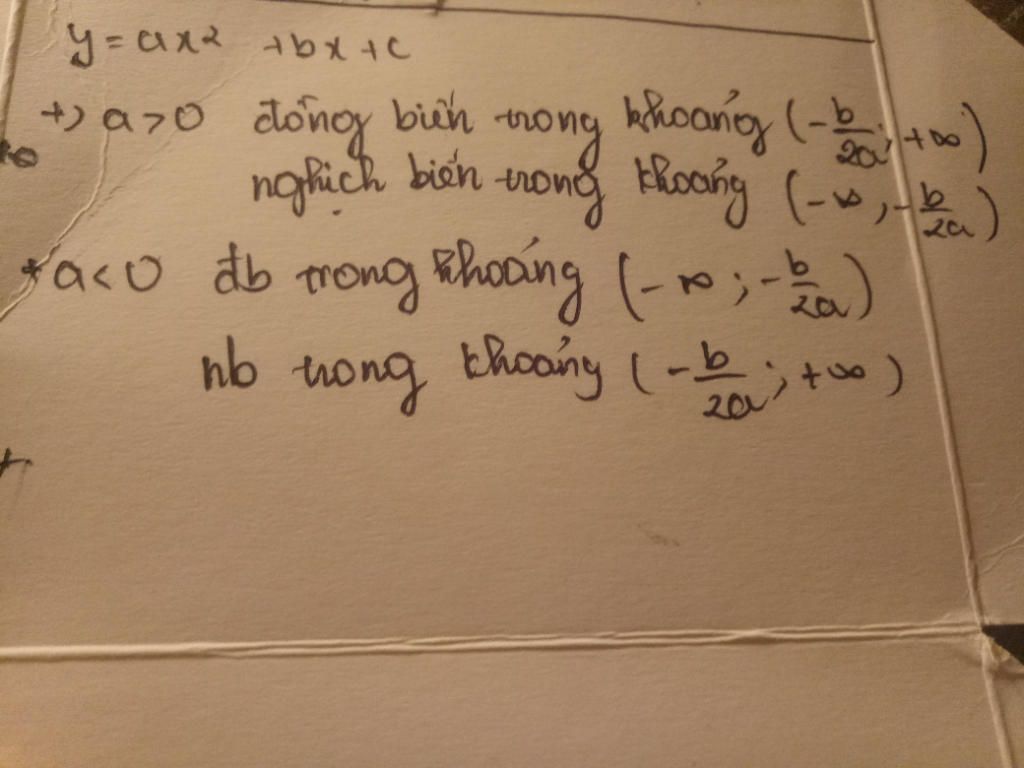 y = ax² + bx + c
+) a > 0 đồng biến trong khoảng (-b/2a; +∞)
nghịch biến trong khoảng (-∞; -b/2a)
* a < 0 đb trong khoảng (-∞; -b/2a)
nb trong khoảng (-b/2a; +∞)
+